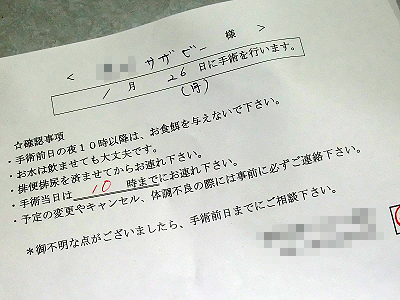 < サザビー 様 >
1月 26日に手術を行います。
(月)
☆確認事項
・手術前日の夜10時以降は、お食餌を与えないで下さい。
・お水は飲ませても大丈夫です。
・排便排尿を済ませてからお連れ下さい。
・手術当日は 10 時までにお連れ下さい。
・予定の変更やキャンセル、体調不良の際には事前に必ずご連絡下さい。
*御不明な点がございましたら、手術前日までにご相談下さい。